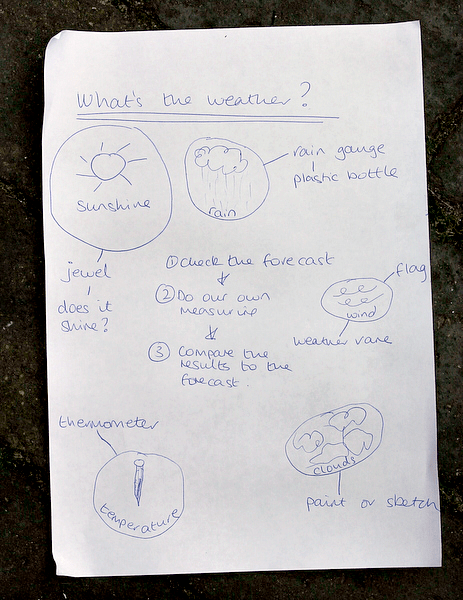 What's the weather?
sunshine
rain
rain gauge
plastic bottle
jewel
does it
shine?
① check the forecast
② Do our own
measuring
③ Compare the
results to the
forecast.
flag
wind
weather vane
thermometer
temperature
clouds
paint or sketch